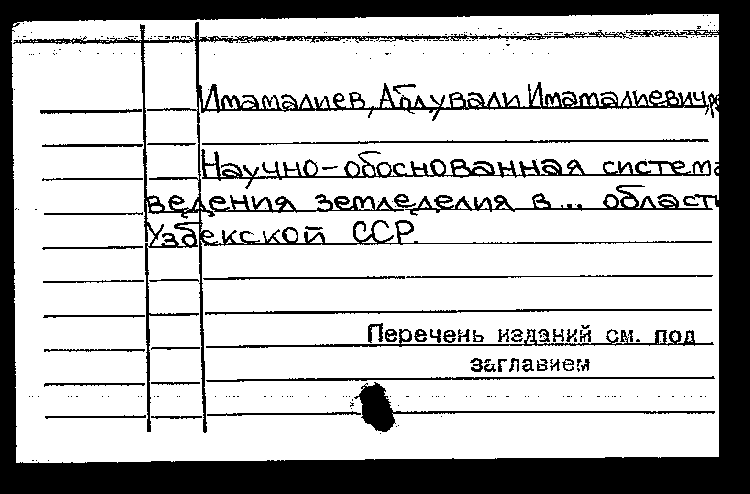 Иматалиев, Аблували Иматалиевич,
Научно-обоснованная система
ведения земледелия в ... област
Узбекской ССР.
Перечень изданий см. под
заглавием